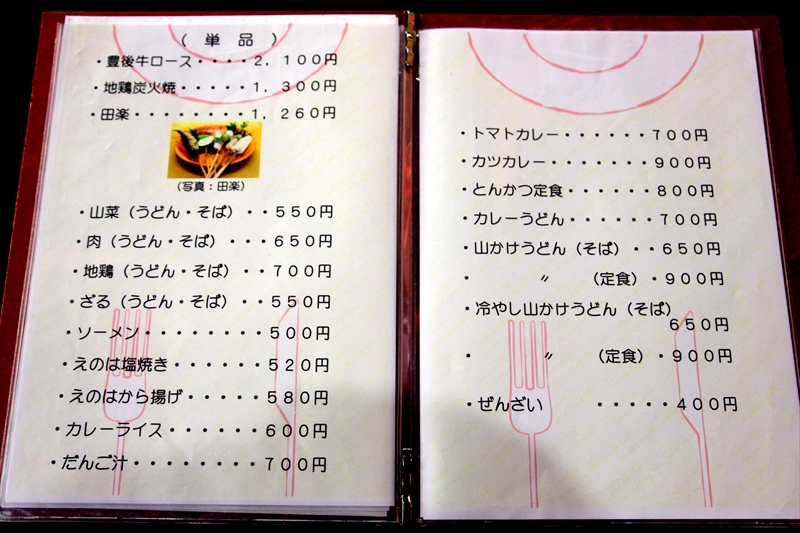 (単品)
・豊後牛ロース・・・・2,100円
・地鶏炭火焼・・・・・1,300円
・田楽・・・・・・・・1,260円
(写真:田楽)
・山菜(うどん・そば)・・550円
・肉(うどん・そば)・・・650円
・地鶏(うどん・そば)・・700円
・ざる(うどん・そば)・・550円
・ソーメン・・・・・・・500円
・えのは塩焼き・・・・・520円
・えのはから揚げ・・・・580円
・カレーライス・・・・・600円
・だんご汁・・・・・・・・700円
・トマトカレー・・・・・・700円
・カツカレー・・・・・・・900円
・とんかつ定食・・・・・・800円
・カレーうどん・・・・・・700円
・山かけうどん(そば)・・650円
・〃(定食)・900円
・冷やし山かけうどん(そば)
650円
・〃(定食)・900円
・ぜんざい・・・・・400円